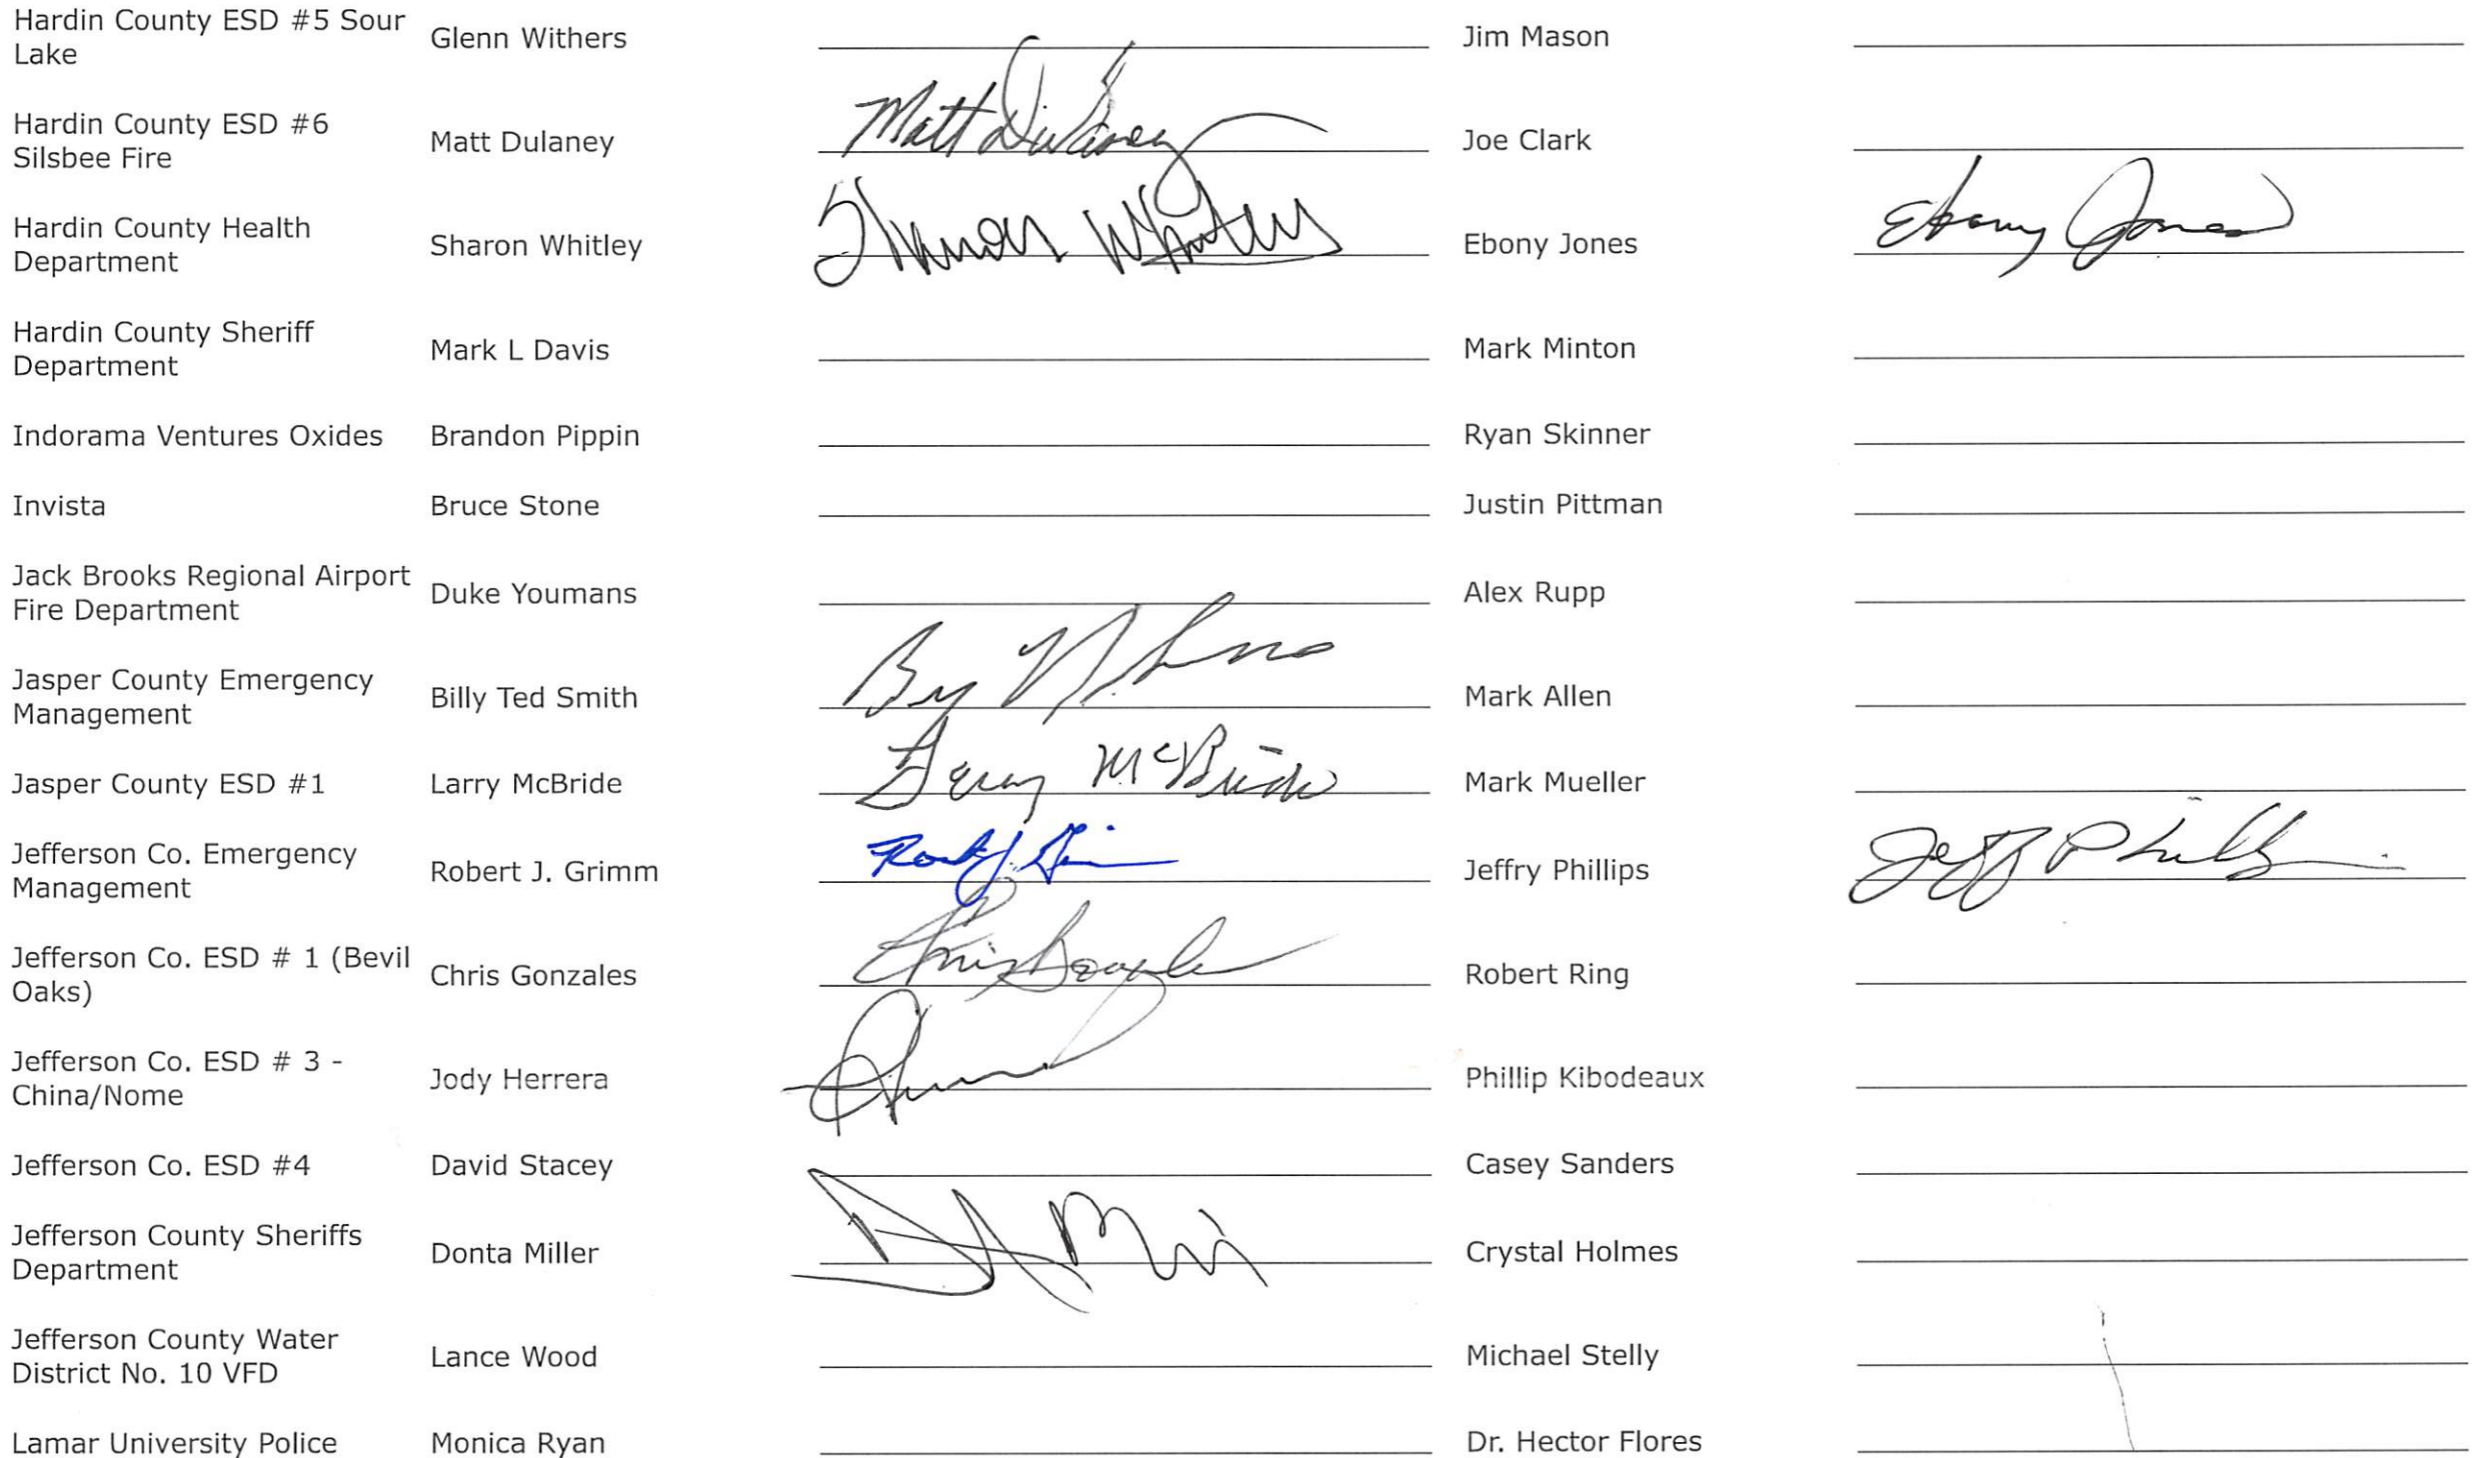 Hardin County ESD #5 Sour Lake Glenn Withers Jim Mason
Matt Dulaney
Hardin County ESD #6 Silsbee Fire Matt Dulaney Joe Clark
Sharon Whitley Ebony Jones
Hardin County Health Department Sharon Whitley Ebony Jones
Hardin County Sheriff Department Mark L Davis Mark Minton
Indorama Ventures Oxides Brandon Pippin Ryan Skinner
Invista Bruce Stone Justin Pittman
Jack Brooks Regional Airport Fire Department Duke Youmans Alex Rupp
Jasper County Emergency Management Billy Ted Smith Mark Allen
McBride
Jasper County ESD #1 Larry McBride Mark Mueller
Jeff Phillips
Jefferson Co. Emergency Management Robert J. Grimm Jeffry Phillips
Chris Gonzales
Jefferson Co. ESD # 1 (Bevil Oaks) Chris Gonzales Robert Ring
Jefferson Co. ESD # 3 - China/Nome Jody Herrera Phillip Kibodeaux
Jefferson Co. ESD #4 David Stacey Casey Sanders
Jefferson County Sheriffs Department Donta Miller Crystal Holmes
Jefferson County Water District No. 10 VFD Lance Wood Michael Stelly
Lamar University Police Monica Ryan Dr. Hector Flores